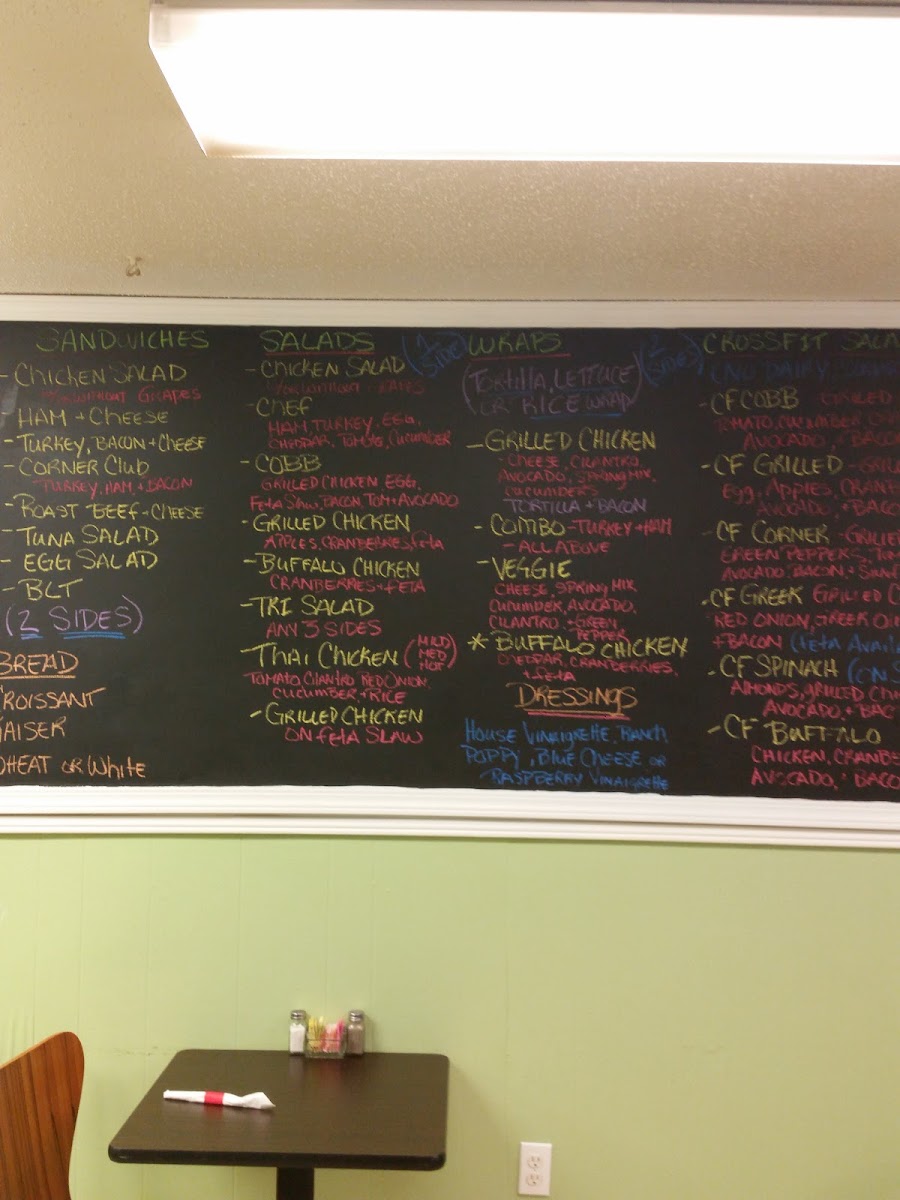 SANDWICHES
- CHICKEN SALAD
W/OR WITHOUT GRAPES
- HAM + CHEESE
- TURKEY, BACON + CHEESE
- CORNER CLUB
TURKEY, HAM + BACON
- ROAST BEEF + CHEESE
- TUNA SALAD
- EGG SALAD
- BLT
(2 SIDES)
BREAD
CROISSANT
KAISER
WHEAT OR WHITE
SALADS (1 SIDE)
- CHICKEN SALAD
W/OR WITHOUT GRAPES
- CHEF
HAM, TURKEY, EGG,
CHEDDAR, TOMATO, CUCUMBER
- COBB
GRILLED CHICKEN EGG,
FETA SLAW, BACON, TOM + AVOCADO
- GRILLED CHICKEN
APPLES, CRANBERRIES, FETA
- BUFFALO CHICKEN
CRANBERRIES + FETA
- TRI SALAD
ANY 3 SIDES
- THAI CHICKEN (MILD MED HOT)
TOMATO CILANTRO RED ONION,
CUCUMBER + RICE
- GRILLED CHICKEN
ON FETA SLAW
WRAPS (2 SIDES)
(TORTILLA, LETTUCE
OR RICE WRAP)
- GRILLED CHICKEN
CHEESE, CILANTRO,
AVOCADO, SPRING MIX,
CUCUMBERS
TORTILLA + BACON
- COMBO - TURKEY + HAM
- ALL ABOVE
- VEGGIE
CHEESE, SPRING MIX
CUCUMBER, AVOCADO,
CILANTRO, + GREEN
PEPPER
* BUFFALO CHICKEN
CHEDDAR, CRANBERRIES,
+ FETA
DRESSINGS
HOUSE VINAIGRETTE, RANCH
POPPY, BLUE CHEESE OR
RASPBERRY VINAIGRETTE
CROSSFIT SALA
(NO DAIRY
- CF COBB GRILLED
TOMATO, CUCUMBER
AVOCADO, + BACO
- CF GRILLED - GRIL
EGG, APPLES, CRAN
AVOCADO, + BACO
- CF CORNER - GRILLE
GREEN PEPPERS, TOM
AVOCADO, BACON, +
- CF GREEK GRILLED C
RED ONION, GREEK OLI
+ BACON (FETA AVAIL
- CF SPINACH (ON S
ALMONDS, GRILLED CHI
AVOCADO, + BAC
- CF BUFFALO
CHICKEN, CRANBE
AVOCADO, + BACO